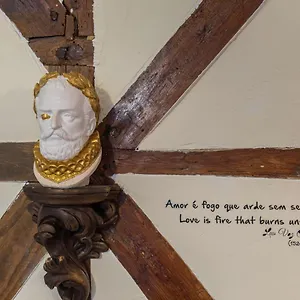 Amor é fogo que arde sem se
Love is fire that burns un
(152